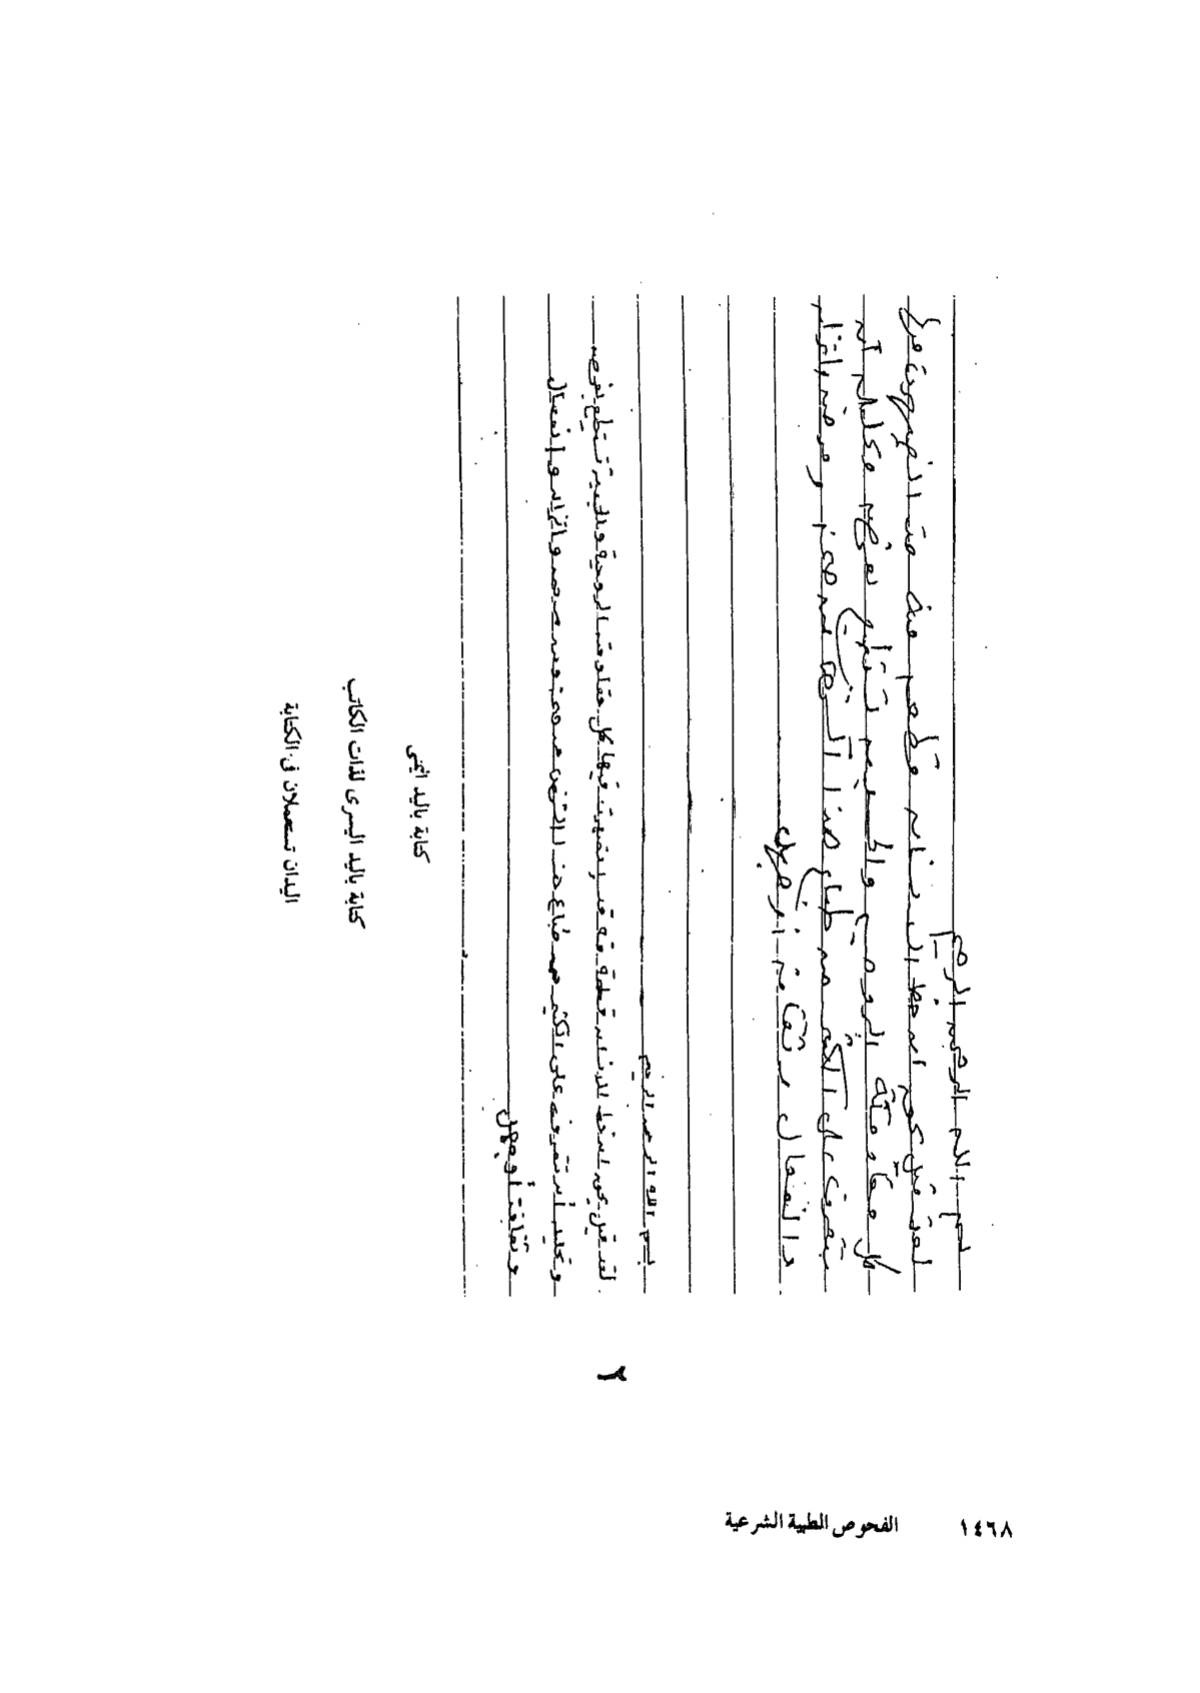 بسم الله الرحمن الرحيم
لقد قيل بحق ان خط الانسان قطعة منه من الشخصية فيها
كل مقاومته الروحية والجسدية تستطيع بغرض وتحليل أن
يتعرف على الكثير من طباع هذا الشخص من صحته ومرضه واتزان
والنفعال وثقافته أو جهل
بسم الله الرحمن الرحيم
لقد قيل بحق ان خط الانسان قطعة منه من الشخصية فيها كل مقاومته الروحية والجسدية تستطيع بغرض
وتحليل أن تتعرف على الكثير من طباع هذا الشخص من صحته ومن مرضه واتزانه وانفعال
وثقافته أو جهل
كتابة باليد اليمنى
كتابة باليد اليسرى لذات الكاتب
اليدان تستعملان في الكتابة
٢
١٤٦٨ الفحوص الطبية الشرعية